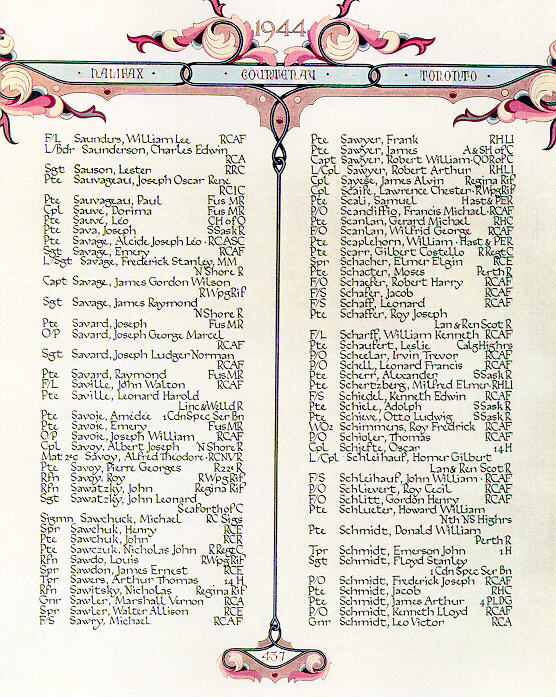 1944
HALIFAX · COURTENAY · TORONTO
F/L Saunders, William Lee RCAF
L/Bdr Saunderson, Charles Edwin
RCA
Sgt Sauson, Lester RRC
Pte Sauvageau, Joseph Oscar Rene
RCIC
Pte Sauvageau, Paul Fus MR
Cpl Sauve, Dorima Fus MR
Pte Sauvé, Léo CH of O
Pte Sava, Joseph SSask R
Pte Savage, Alcide Joseph Léo · RCASC
Sgt Savage, Emery RCAF
L/Sgt Savage, Frederick Stanley, MM
N Shore R
Capt Savage, James Gordon Wilson
RWpgRif
Sgt Savage, James Raymond
N Shore R
Pte Savard, Joseph Fus MR
O/P Savard, Joseph George Marcel
RCAF
Sgt Savard, Joseph Ludger Norman
RCAF
Pte Savard, Raymond Fus MR
F/L Saville, John Walton RCAF
Pte Saville, Leonard Harold
Linc & Welld R
Pte Savoie, Amédée 1 Cdn Spec Ser Bn
Pte Savoie, Emery Fus MR
O/P Savoie, Joseph William RCAF
Cpl Savoy, Albert Joseph N Shore R
Mat 2sc Savoy, Alfred Theodore · RCNVR
Pte Savoy, Pierre Georges R22e R
Rfn Savoy, Roy RWpgRif
Rfn Sawatzky, John Regina Rif
Sgt Sawatzky, John Leonard
Seaforth of C
Sigmn Sawchuck, Michael RC Sigs
Spr Sawchuk, Henry RCE
Pte Sawchuk, John RCR
Pte Sawczuk, Nicholas John R Regt C
Rfn Sawdo, Louis RWpgRif
Spr Sawdon, James Ernest RCE
Tpr Sawers, Arthur Thomas 14 H
Rfn Sawitsky, Nicholas Regina Rif
Gnr Sawler, Marshall Vernon RCA
Spr Sawler, Walter Allison RCE
F/S Sawry, Michael RCAF
Pte Sawyer, Frank RHLI
Pte Sawyer, James A & SH of C
Capt Sawyer, Robert William · QOR of C
L/Cpl Sawyer, Robert Arthur RHLI
Cpl Sayese, James Alvin Regina Rif
Cpl Scaife, Lawrence Chester · RWpgRif
Pte Scali, Samuel Hast & PER
P/O Scandiffio, Francis Michael · RCAF
Pte Scanlan, Gerard Michael RHC
F/O Scanlan, Wilfrid George RCAF
Pte Scaplehorn, William · Hast & PER
Pte Scarr, Gilbert Costello R Regt C
Spr Schacher, Elmer Elgin RCE
Pte Schacter, Moses Perth R
F/O Schaefer, Robert Harry RCAF
F/S Schafer, Jacob RCAF
F/S Schaff, Leonard RCAF
Pte Schaffer, Roy Joseph
Lan & Ren Scot R
F/L Scharff, William Kenneth RCAF
Pte Schaufert, Leslie Calg Highrs
P/O Scheelar, Irvin Trevor RCAF
P/O Schell, Leonard Francis RCAF
Pte Scherr, Alexander SSask R
Pte Schertzberg, Milfred Elmer RHLI
F/S Schiedel, Kenneth Edwin RCAF
Pte Schiele, Adolph SSask R
Pte Schieve, Otto Ludwig SSask R
WO2 Schimmens, Roy Fredrick RCAF
P/O Schioler, Thomas RCAF
Cpl Schjefte, Oscar 14 H
L/Cpl Schleihauf, Homer Gilbert
Lan & Ren Scot R
F/S Schleihauf, John William · RCAF
P/O Schlievert, Roy Cecil RCAF
F/O Schlitt, Gordon Henry RCAF
Pte Schlueter, Howard William
Nth NS Highrs
Pte Schmidt, Donald William
Perth R
Tpr Schmidt, Emerson John 1 H
Sgt Schmidt, Floyd Stanley
1 Cdn Spec Ser Bn
P/O Schmidt, Frederick Joseph RCAF
Pte Schmidt, Jacob RHC
Pte Schmidt, James Arthur 4 PLDG
P/O Schmidt, Kenneth Lloyd RCAF
Gnr Schmidt, Leo Victor RCA
437